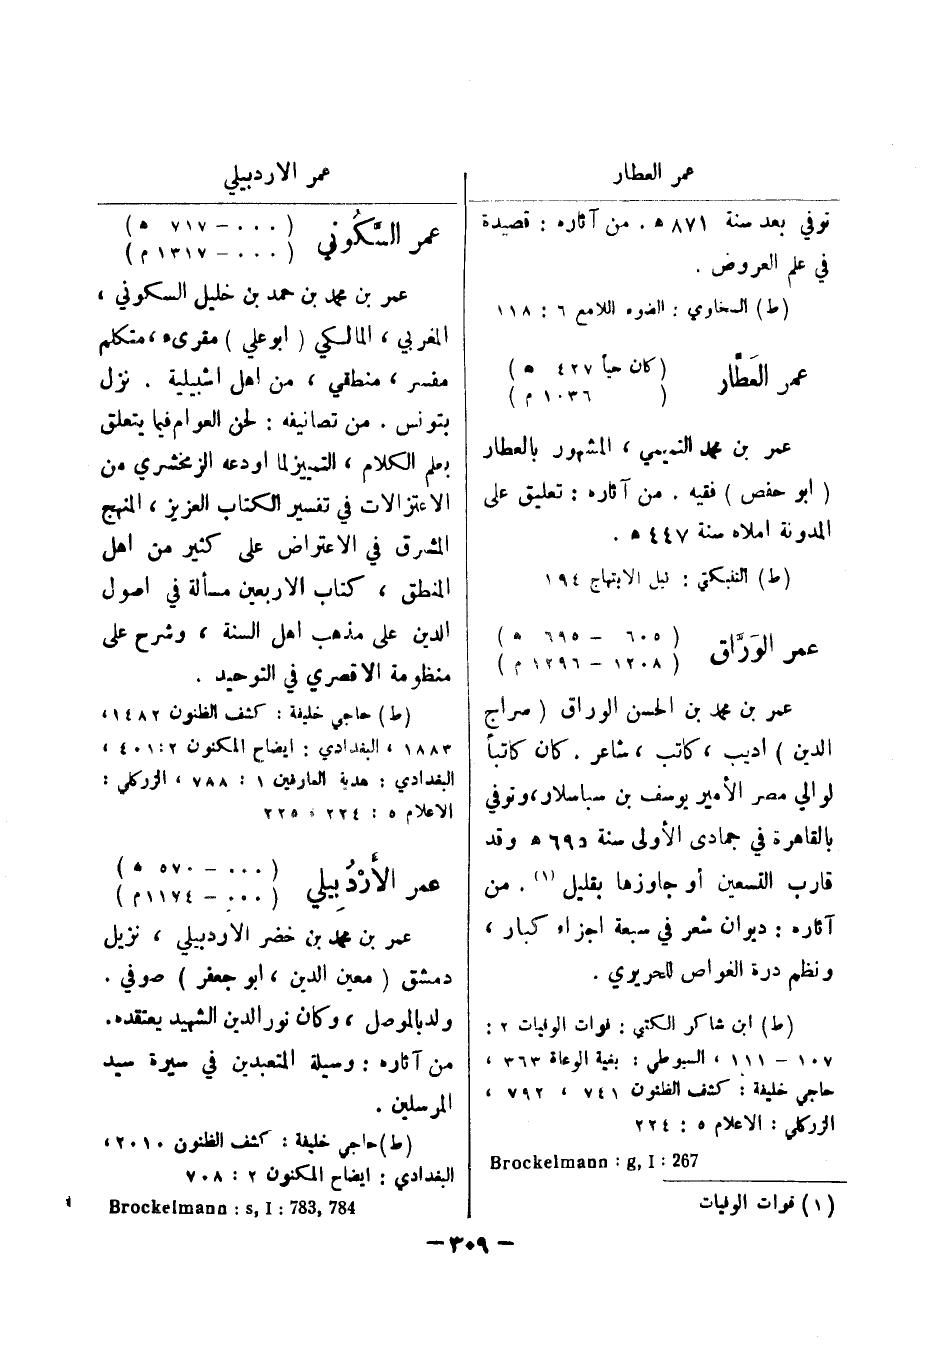 عمر العطار
توفي بعد سنة ٨٧١ ه . من آثاره : قصيدة
في علم العروض .
(ط) السخاوي : الضوء اللامع ٦ : ١١٨
عمر العَطَّار
( كان حياً ٤٢٧ ه )
( ١٠٣٦ م )
عمر بن محمد التميمي ، المشهور بالعطار
( ابو حفص ) فقيه . من آثاره : تعليق على
المدونة املاه سنة ٤٤٧ ه .
(ط) التنبكتي : نيل الابتهاج ١٩٤
عمر الوَرَّاق
( ٦٠٥ – ٦٩٥ ه )
( ١٢٠٨ – ١٢٩٦ م )
عمر بن محمد بن الحسن الوراق ( سراج
الدين ) اديب ، كاتب ، شاعر . كان كاتباً
لوالي مصر الأمير يوسف بن سباسلار، وتوفي
بالقاهرة في جمادى الأولى سنة ٦٩٥ ه وقد
قارب التسعين أو جاوزها بقليل (١) . من
آثاره : ديوان شعر في سبعة اجزاء كبار ،
ونظم درة الغواص للحريري .
(ط) ابن شاكر الكتبي : فوات الوفيات ٢ :
١٠٧ – ١١١ ، السيوطي : بغية الوعاة ٣٦٣ ،
حاجي خليفة : كشف الظنون ٧٤١ ، ٧٩٢ ،
الزركلي : الاعلام ٥ : ٢٢٤
Brockelmann : g, I : 267
(١) فوات الوفيات
عمر الاردبيلي
عمر السَّكُوني
( ٠٠٠ – ٧١٧ ه )
( ٠٠٠ – ١٣١٧ م )
عمر بن محمد بن حمد بن خليل السكوني ،
المغربي ، المالكي ( ابو علي ) مقرىء ، متكلم
مفسر ، منطقي ، من اهل اشبيلية . نزل
بتونس . من تصانيفه : لحن العوام فيما يتعلق
بعلم الكلام ، التمييز لما اودعه الزمخشري من
الاعتزالات في تفسير الكتاب العزيز ، المنهج
المشرق في الاعتراض على كثير من اهل
المنطق ، كتاب الاربعين مسألة في اصول
الدين على مذهب اهل السنة ، وشرح على
منظومة الاقصري في التوحيد .
(ط) حاجي خليفة : كشف الظنون ١٤٨٢،
١٨٨٣ ، البغدادي : ايضاح المكنون ٢ : ٤٠١ ،
البغدادي : هدية العارفين ١ : ٧٨٨ ، الزركلي :
الاعلام ٥ : ٢٢٤ ، ٢٢٥
عمر الأَرْدُبِيلي
( ٠٠٠ – ٥٧٠ ه )
( ٠٠٠ – ١١٧٤ م )
عمر بن محمد بن خضر الاردبيلي ، نزيل
دمشق ( معين الدين ، ابو جعفر ) صوفي .
ولد بالموصل ، وكان نور الدين الشهيد يعتقده.
من آثاره : وسيلة المتعبدين في سيرة سيد
المرسلين .
(ط) حاجي خليفة : كشف الظنون ٢٠١٠ ،
البغدادي : ايضاح المكنون ٢ : ٧٠٨
Brockelmann : s, I : 783, 784
— ٣٠٩ —